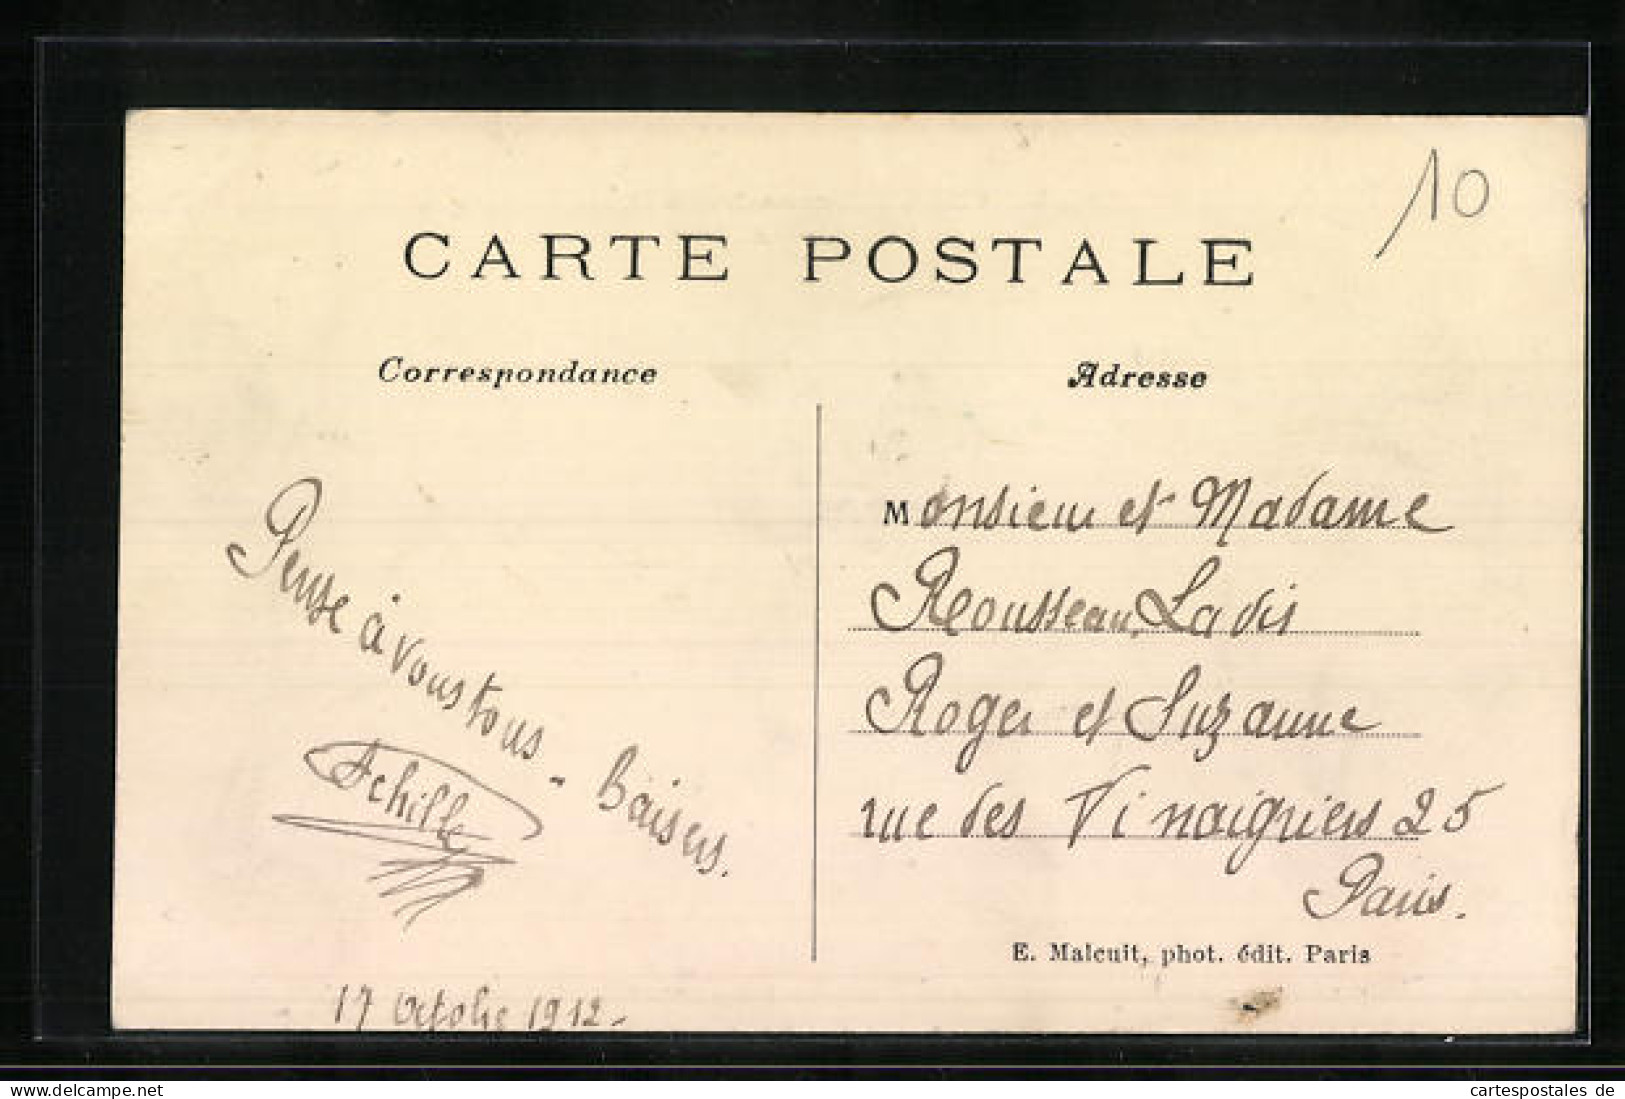 10
CARTE POSTALE
Correspondance
Pense à vous tous - baisers.
Achille
17 Octobre 1912-
Adresse
Monsieur et Madame
Rousseau, Ladis
Roger et Suzanne
rue des Vinaigriers 25
Paris.
E. Malcuit, phot. édit. Paris
www.cartespostales.de
cartespostales de